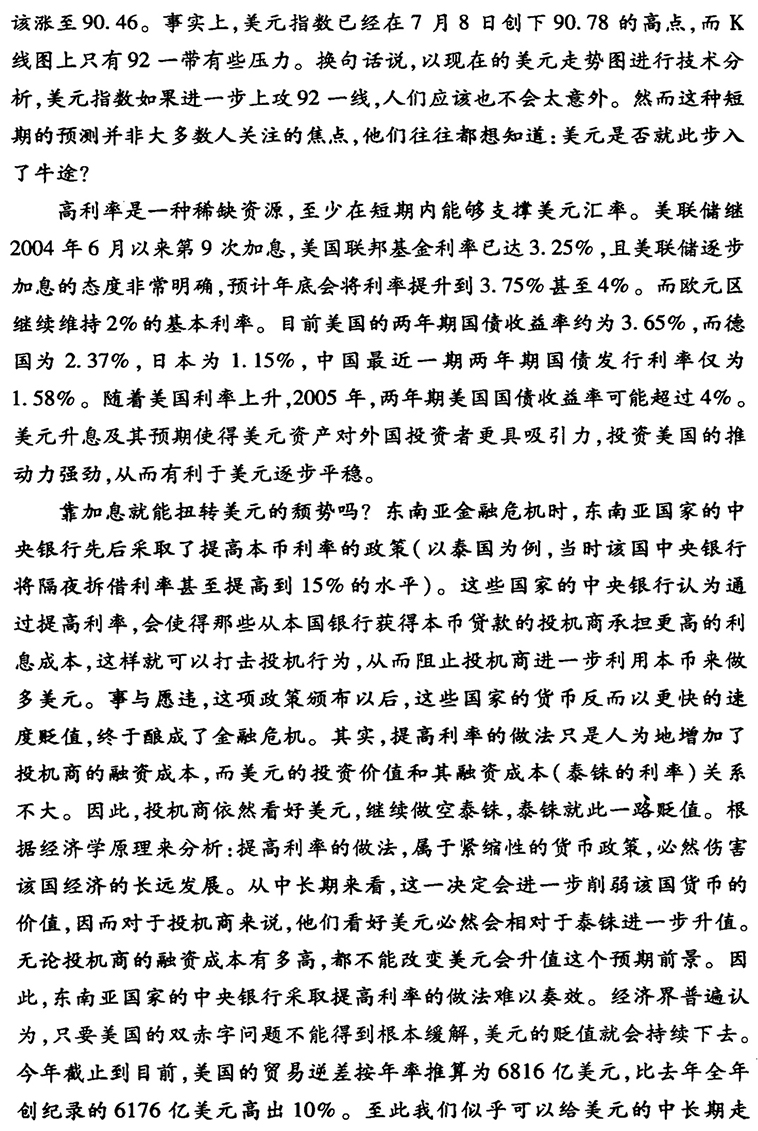 该涨至90.46。事实上,美元指数已经在7月8日创下90.78的高点,而K
线图上只有92一带有些压力。换句话说,以现在的美元走势图进行技术分
析,美元指数如果进一步上攻92一线,人们应该也不会太意外。然而这种短
期的预测并非大多数人关注的焦点,他们往往都想知道:美元是否就此步入
了牛途?
高利率是一种稀缺资源,至少在短期内能够支撑美元汇率。美联储继
2004年6月以来第9次加息,美国联邦基金利率已达3.25%,且美联储逐步
加息的态度非常明确,预计年底会将利率提升到3.75%甚至4%。而欧元区
继续维持2%的基本利率。目前美国的两年期国债收益率约为3.65%,而德
国为2.37%,日本为1.15%,中国最近一期两年期国债发行利率仅为
1.58%。随着美国利率上升,2005年,两年期美国国债收益率可能超过4%。
美元升息及其预期使得美元资产对外国投资者更具吸引力,投资美国的推
动力强劲,从而有利于美元逐步平稳。
靠加息就能扭转美元的颓势吗?东南亚金融危机时,东南亚国家的中
央银行先后采取了提高本币利率的政策(以泰国为例,当时该国中央银行
将隔夜拆借利率甚至提高到15%的水平)。这些国家的中央银行认为通
过提高利率,会使得那些从本国银行获得本币贷款的投机商承担更高的利
息成本,这样就可以打击投机行为,从而阻止投机商进一步利用本币来做
多美元。事与愿违,这项政策颁布以后,这些国家的货币反而以更快的速
度贬值,终于酿成了金融危机。其实,提高利率的做法只是人为地增加了
投机商的融资成本,而美元的投资价值和其融资成本(泰铢的利率)关系
不大。因此,投机商依然看好美元,继续做空泰铢,泰铢就此一路贬值。根
据经济学原理来分析:提高利率的做法,属于紧缩性的货币政策,必然伤害
该国经济的长远发展。从中长期来看,这一决定会进一步削弱该国货币的
价值,因而对于投机商来说,他们看好美元必然会相对于泰铢进一步升值。
无论投机商的融资成本有多高,都不能改变美元会升值这个预期前景。因
此,东南亚国家的中央银行采取提高利率的做法难以奏效。经济界普遍认
为,只要美国的双赤字问题不能得到根本缓解,美元的贬值就会持续下去。
今年截止到目前,美国的贸易逆差按年率推算为6816亿美元,比去年全年
创纪录的6176亿美元高出10%。至此我们似乎可以给美元的中长期走